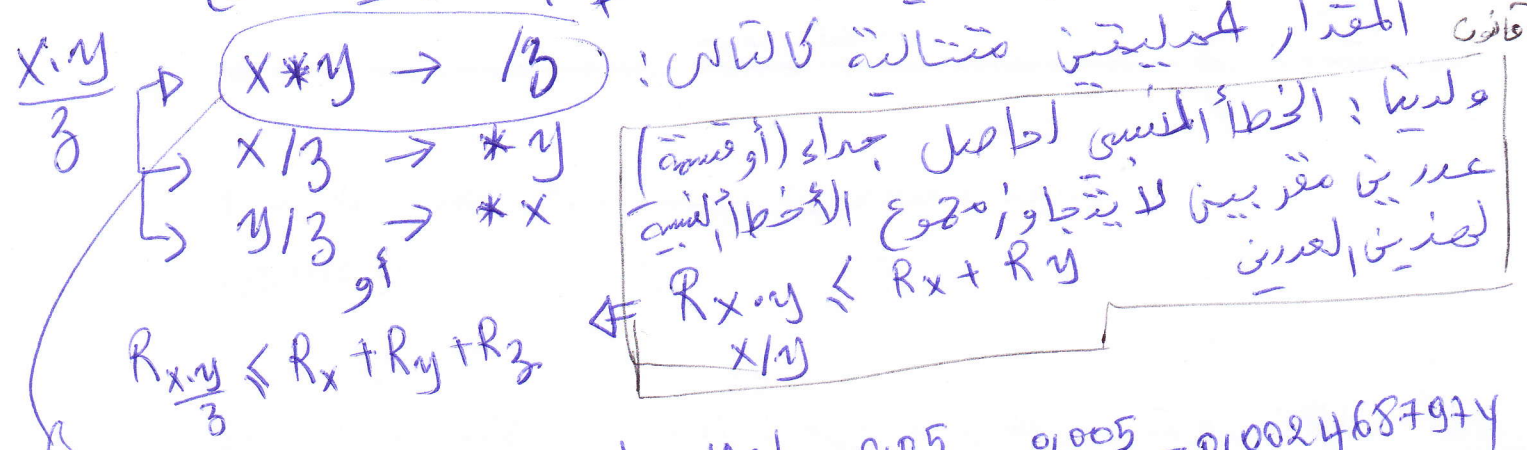 قانون
المقدار عمليتين متتالية كالتالي:
x·y/z
x*y → /z
x/z → *y
y/z → *x
أو
R x·y/z ≤ Rx + Ry + Rz
ولدينا: الخطأ النسبي لحاصل جداء (أو قسمة)
عددين مقربين لا يتجاوز مجموع الأخطاء النسبية
لهذين العددين
⇐ R x·y ≤ Rx + Ry
x/y
0,005 0,0024687974